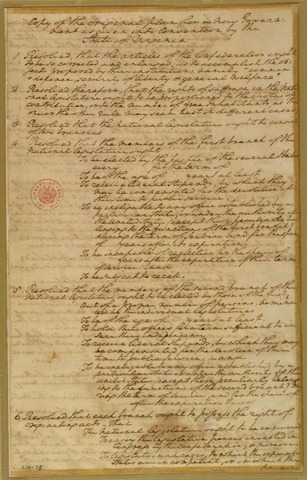 Copy of the original plan for a new Govern-
ment as given into Convention by the
State of Virginia
1. Resolved, that the articles of the Confederation ought
to be so corrected and enlarged, as to accomplish the ob-
jects proposed by their institution; namely "common
defence, security of liberty & general welfare"
2. Resolved therefore, that the rights of suffrage in the nati-
onal Legislature ought to be proportioned to the quotas of
contribution, or to the number of free Inhabitants, as the
one or the other rule may seem best in different cases
3. Resolved that the national Legislature ought to consist
of two branches
4. Resolved that the members of the first branch of the
national Legislature ought
To be elected by the people of the several States
every for the term of
To be of the age of years at least
To receive liberal stipends, by which they
may be compensated for the devotion of
their time to public service
To be ineligible to any office established by a
particular State, or under the authority of the
United States, except those peculiarly belong
to the functions of the first branch,
during the term of service, and for the space
of years after its expiration;
To be incapable of reelection for the space
of years after the expiration of their term
of service, and
To be subject to recall.
5. Resolved that the members of the second branch of the
national Legislature ought to be elected by those of the first,
out of a proper number of persons nomina-
ted by the individual Legislatures
To be of the age of years at least
To hold their offices for a term sufficient to ensure
their independency
To receive liberal stipends, by which they may
be compensated for the devotion of their
time to public service; and
To be ineligible to any office established by a
particular State, or under the authority of the
United States, except those peculiarly belong
to the functions of the second branch, du
ring the term of service, and for the space of
after the expiration thereof
6. Resolved that each branch ought to possess the right of
originating acts, that
The national Legislature ought to be empowered
To enjoy the legislative powers vested in
Congress by the Confederation; and moreover
To legislate in all cases, to which the separate
States are incompetent, or in which the